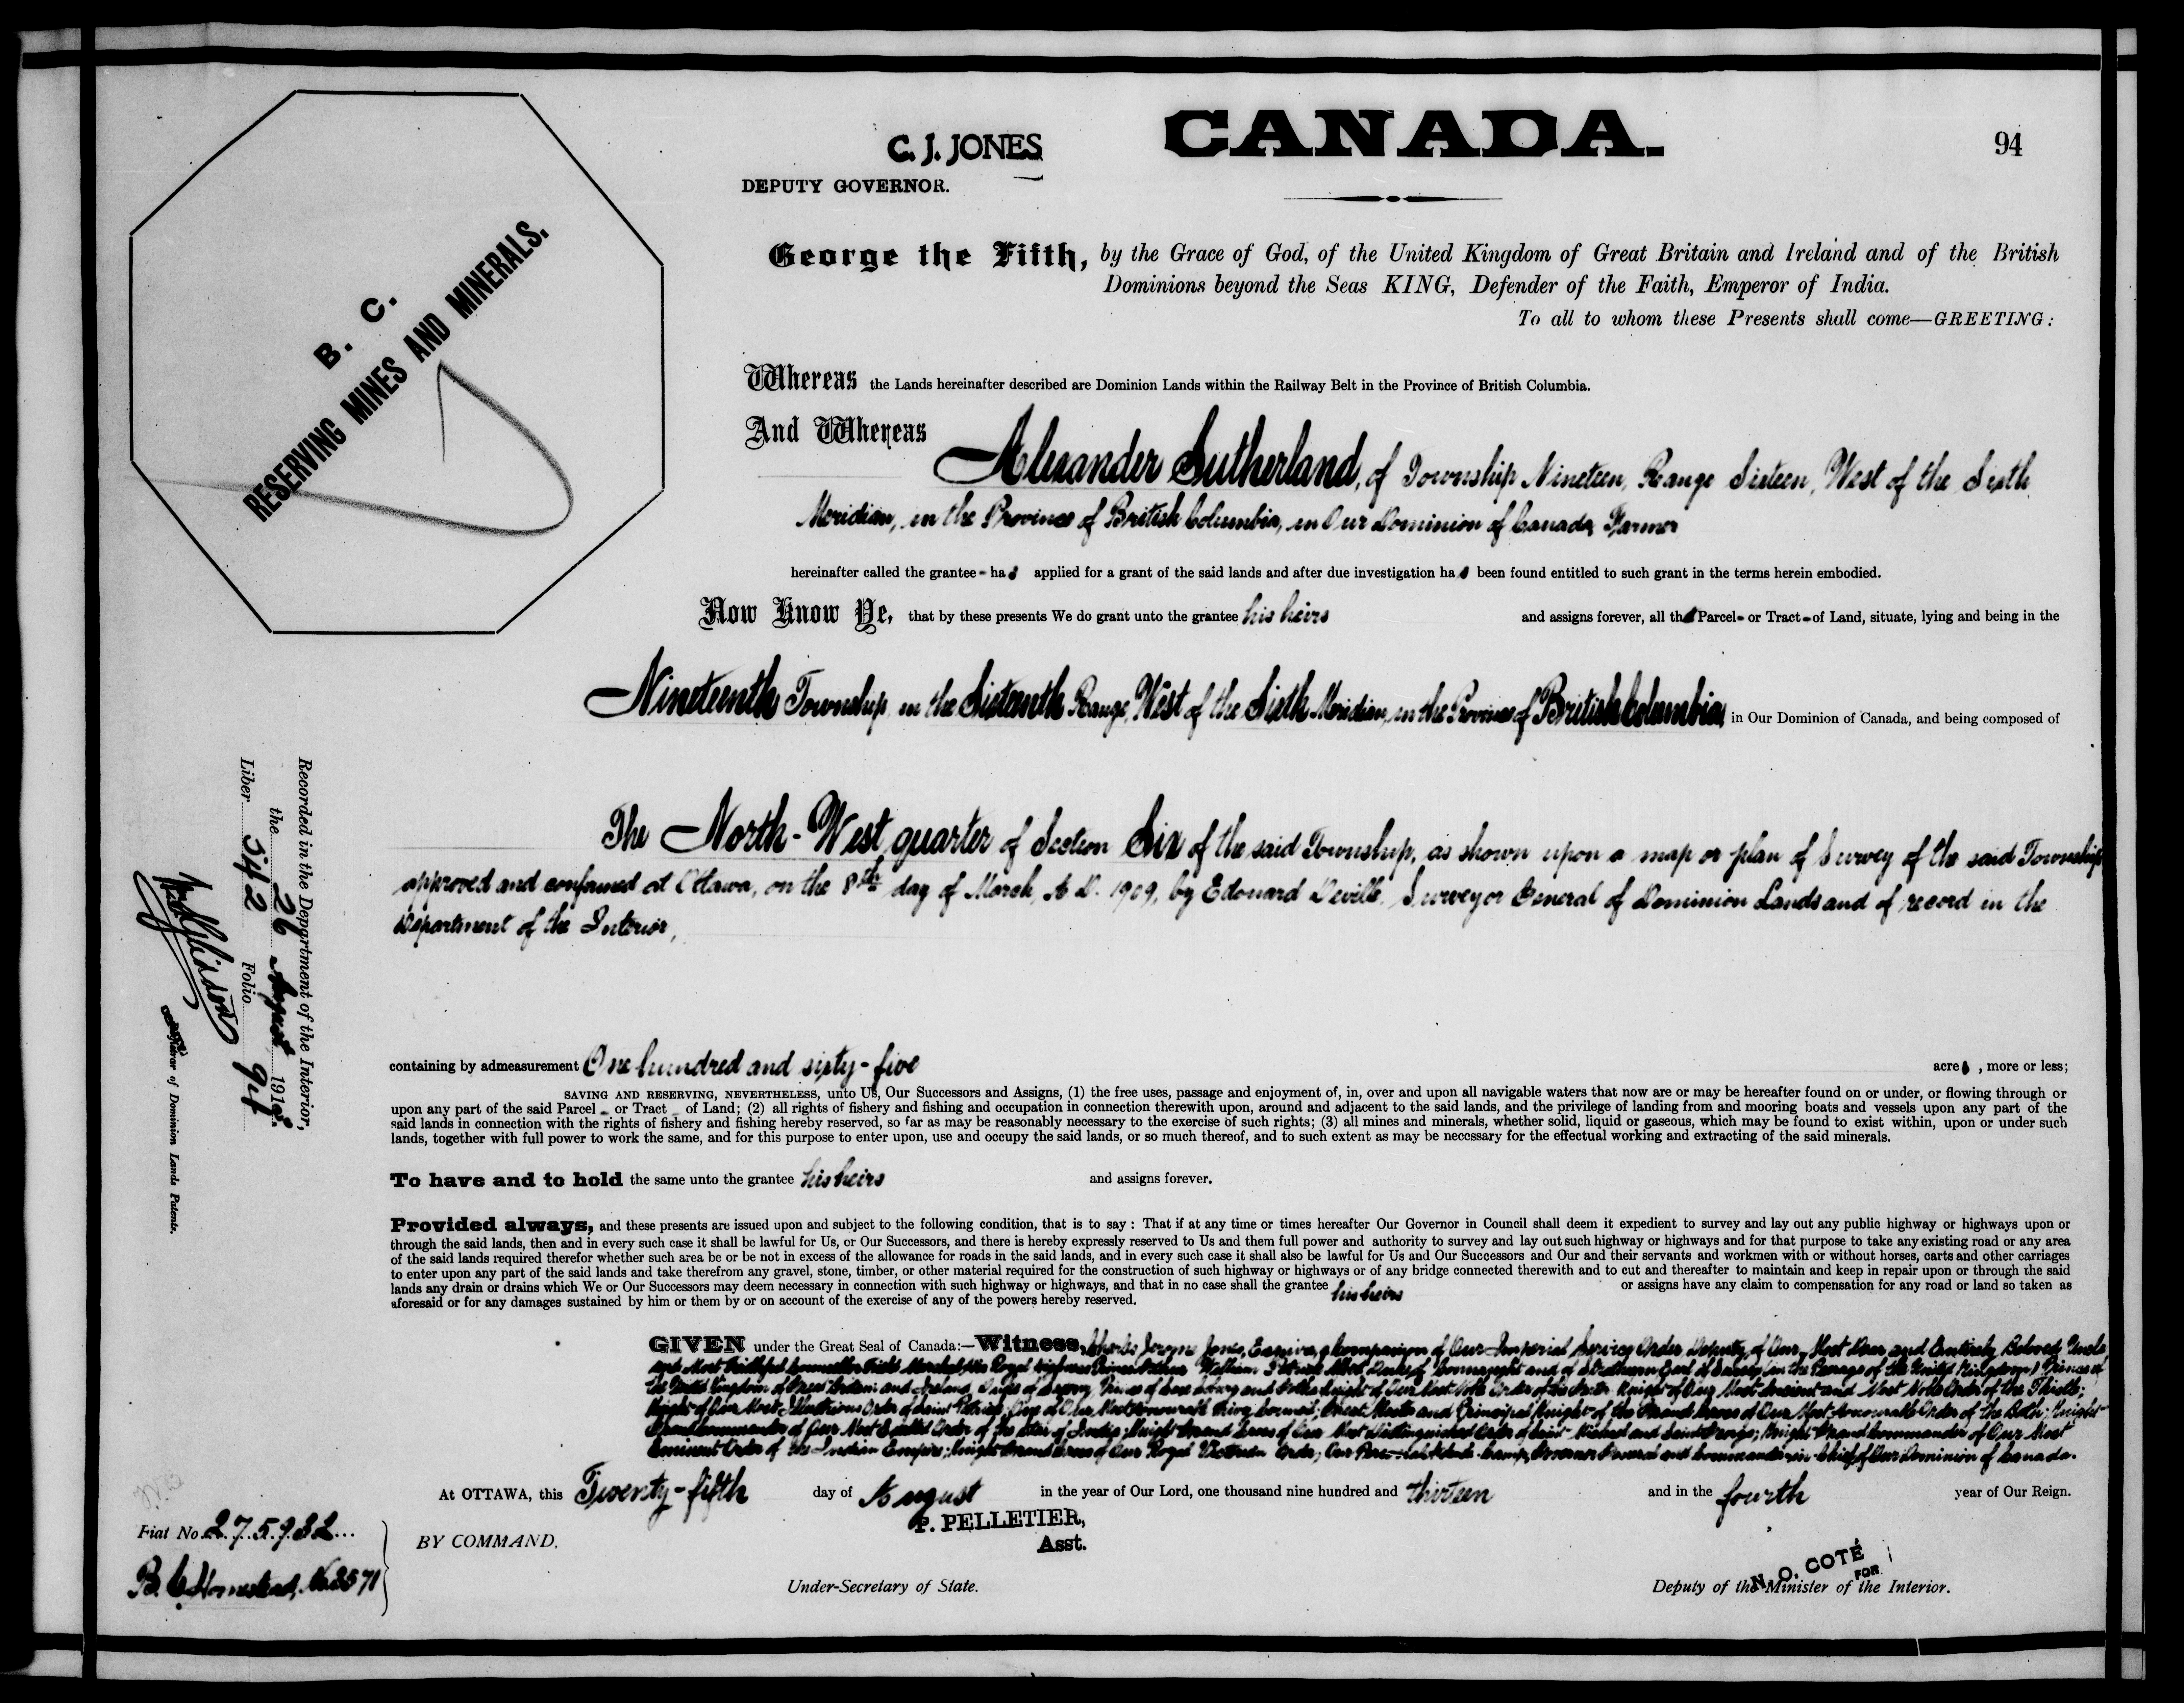 CANADA.
94
C. J. JONES
DEPUTY GOVERNOR.
B. C.
RESERVING MINES AND MINERALS.
George the Fifth, by the Grace of God, of the United Kingdom of Great Britain and Ireland and of the British
Dominions beyond the Seas KING, Defender of the Faith, Emperor of India.
To all to whom these Presents shall come—GREETING:
Whereas the Lands hereinafter described are Dominion Lands within the Railway Belt in the Province of British Columbia.
And Whereas Alexander Sutherland, of Township Nineteen, Range Sixteen, West of the Sixth
Meridian, in the Province of British Columbia, in Our Dominion of Canada, Farmer
hereinafter called the grantee - has applied for a grant of the said lands and after due investigation has been found entitled to such grant in the terms herein embodied.
Now Know Ye, that by these presents We do grant unto the grantee his heirs and assigns forever, all that Parcel - or Tract - of Land, situate, lying and being in the
Nineteenth Township, in the Sixteenth Range, West of the Sixth Meridian, in the Province of British Columbia, in Our Dominion of Canada, and being composed of
The North-West quarter of Section Six of the said Township, as shown upon a map or plan of Survey of the said Township
approved and confirmed at Ottawa, on the 8th day of March, A. D. 1909, by Edouard Deville, Surveyor General of Dominion Lands and of record in the
Department of the Interior,
containing by admeasurement One hundred and sixty-five acres, more or less;
SAVING AND RESERVING, NEVERTHELESS, unto Us, Our Successors and Assigns, (1) the free uses, passage and enjoyment of, in, over and upon all navigable waters that now are or may be hereafter found on or under, or flowing through or
upon any part of the said Parcel - or Tract - of Land; (2) all rights of fishery and fishing and occupation in connection therewith upon, around and adjacent to the said lands, and the privilege of landing from and mooring boats and vessels upon any part of the
said lands in connection with the rights of fishery and fishing hereby reserved, so far as may be reasonably necessary to the exercise of such rights; (3) all mines and minerals, whether solid, liquid or gaseous, which may be found to exist within, upon or under such
lands, together with full power to work the same, and for this purpose to enter upon, use and occupy the said lands, or so much thereof, and to such extent as may be necessary for the effectual working and extracting of the said minerals.
To have and to hold the same unto the grantee his heirs and assigns forever.
Provided always, and these presents are issued upon and subject to the following condition, that is to say : That if at any time or times hereafter Our Governor in Council shall deem it expedient to survey and lay out any public highway or highways upon or
through the said lands, then and in every such case it shall be lawful for Us, or Our Successors, and there is hereby expressly reserved to Us and them full power and authority to survey and lay out such highway or highways and for that purpose to take any existing road or any area
of the said lands required therefor whether such area be or be not in excess of the allowance for roads in the said lands, and in every such case it shall also be lawful for Us and Our Successors and Our and their servants and workmen with or without horses, carts and other carriages
to enter upon any part of the said lands and take therefrom any gravel, stone, timber, or other material required for the construction of such highway or highways or of any bridge connected therewith and to cut and thereafter to maintain and keep in repair upon or through the said
lands any drain or drains which We or Our Successors may deem necessary in connection with such highway or highways, and that in no case shall the grantee his heirs or assigns have any claim to compensation for any road or land so taken as
aforesaid or for any damages sustained by him or them by or on account of the exercise of any of the powers hereby reserved.
GIVEN under the Great Seal of Canada:—Witness, Charles Jerome Jones, Esquire, a Companion of Our Imperial Service Order Deputy of Our Most Dear and Entirely Beloved Uncle
and Most Faithful Counsellor Field Marshal His Royal Highness Prince Arthur William Patrick Albert Duke of Connaught and of Strathearn Earl of Sussex (in the Peerage of the United Kingdom) Prince of
the United Kingdom of Great Britain and Ireland, Duke of Saxony, Prince of Saxe Coburg and Gotha; Knight of Our Most Noble Order of the Garter; Knight of Our Most Ancient and Most Noble Order of the Thistle;
Knight of Our Most Illustrious Order of Saint Patrick; One of Our Most Honourable Privy Council; Great Master and Principal Knight of the Grand Cross of Our Most Honourable Order of the Bath; Knight
Grand Commander of Our Most Exalted Order of the Star of India; Knight Grand Cross of Our Most Distinguished Order of Saint Michael and Saint George; Knight Grand Commander of Our Most
Eminent Order of the Indian Empire; Knight Grand Cross of Our Royal Victorian Order; Our Personal Aide-de-Camp, Governor General and Commander-in-Chief of Our Dominion of Canada.
At OTTAWA, this Twenty-fifth day of August in the year of Our Lord, one thousand nine hundred and thirteen and in the fourth year of Our Reign.
BY COMMAND,
P. PELLETIER,
Asst.
Under-Secretary of State.
N. O. COTÉ
FOR
Deputy of the Minister of the Interior.
Fiat No. 275932
B. C. Homestead, No. 3571
Recorded in the Department of the Interior,
the 26 August 191
Liber 542 Folio 94
Registrar of Dominion Lands Patents.